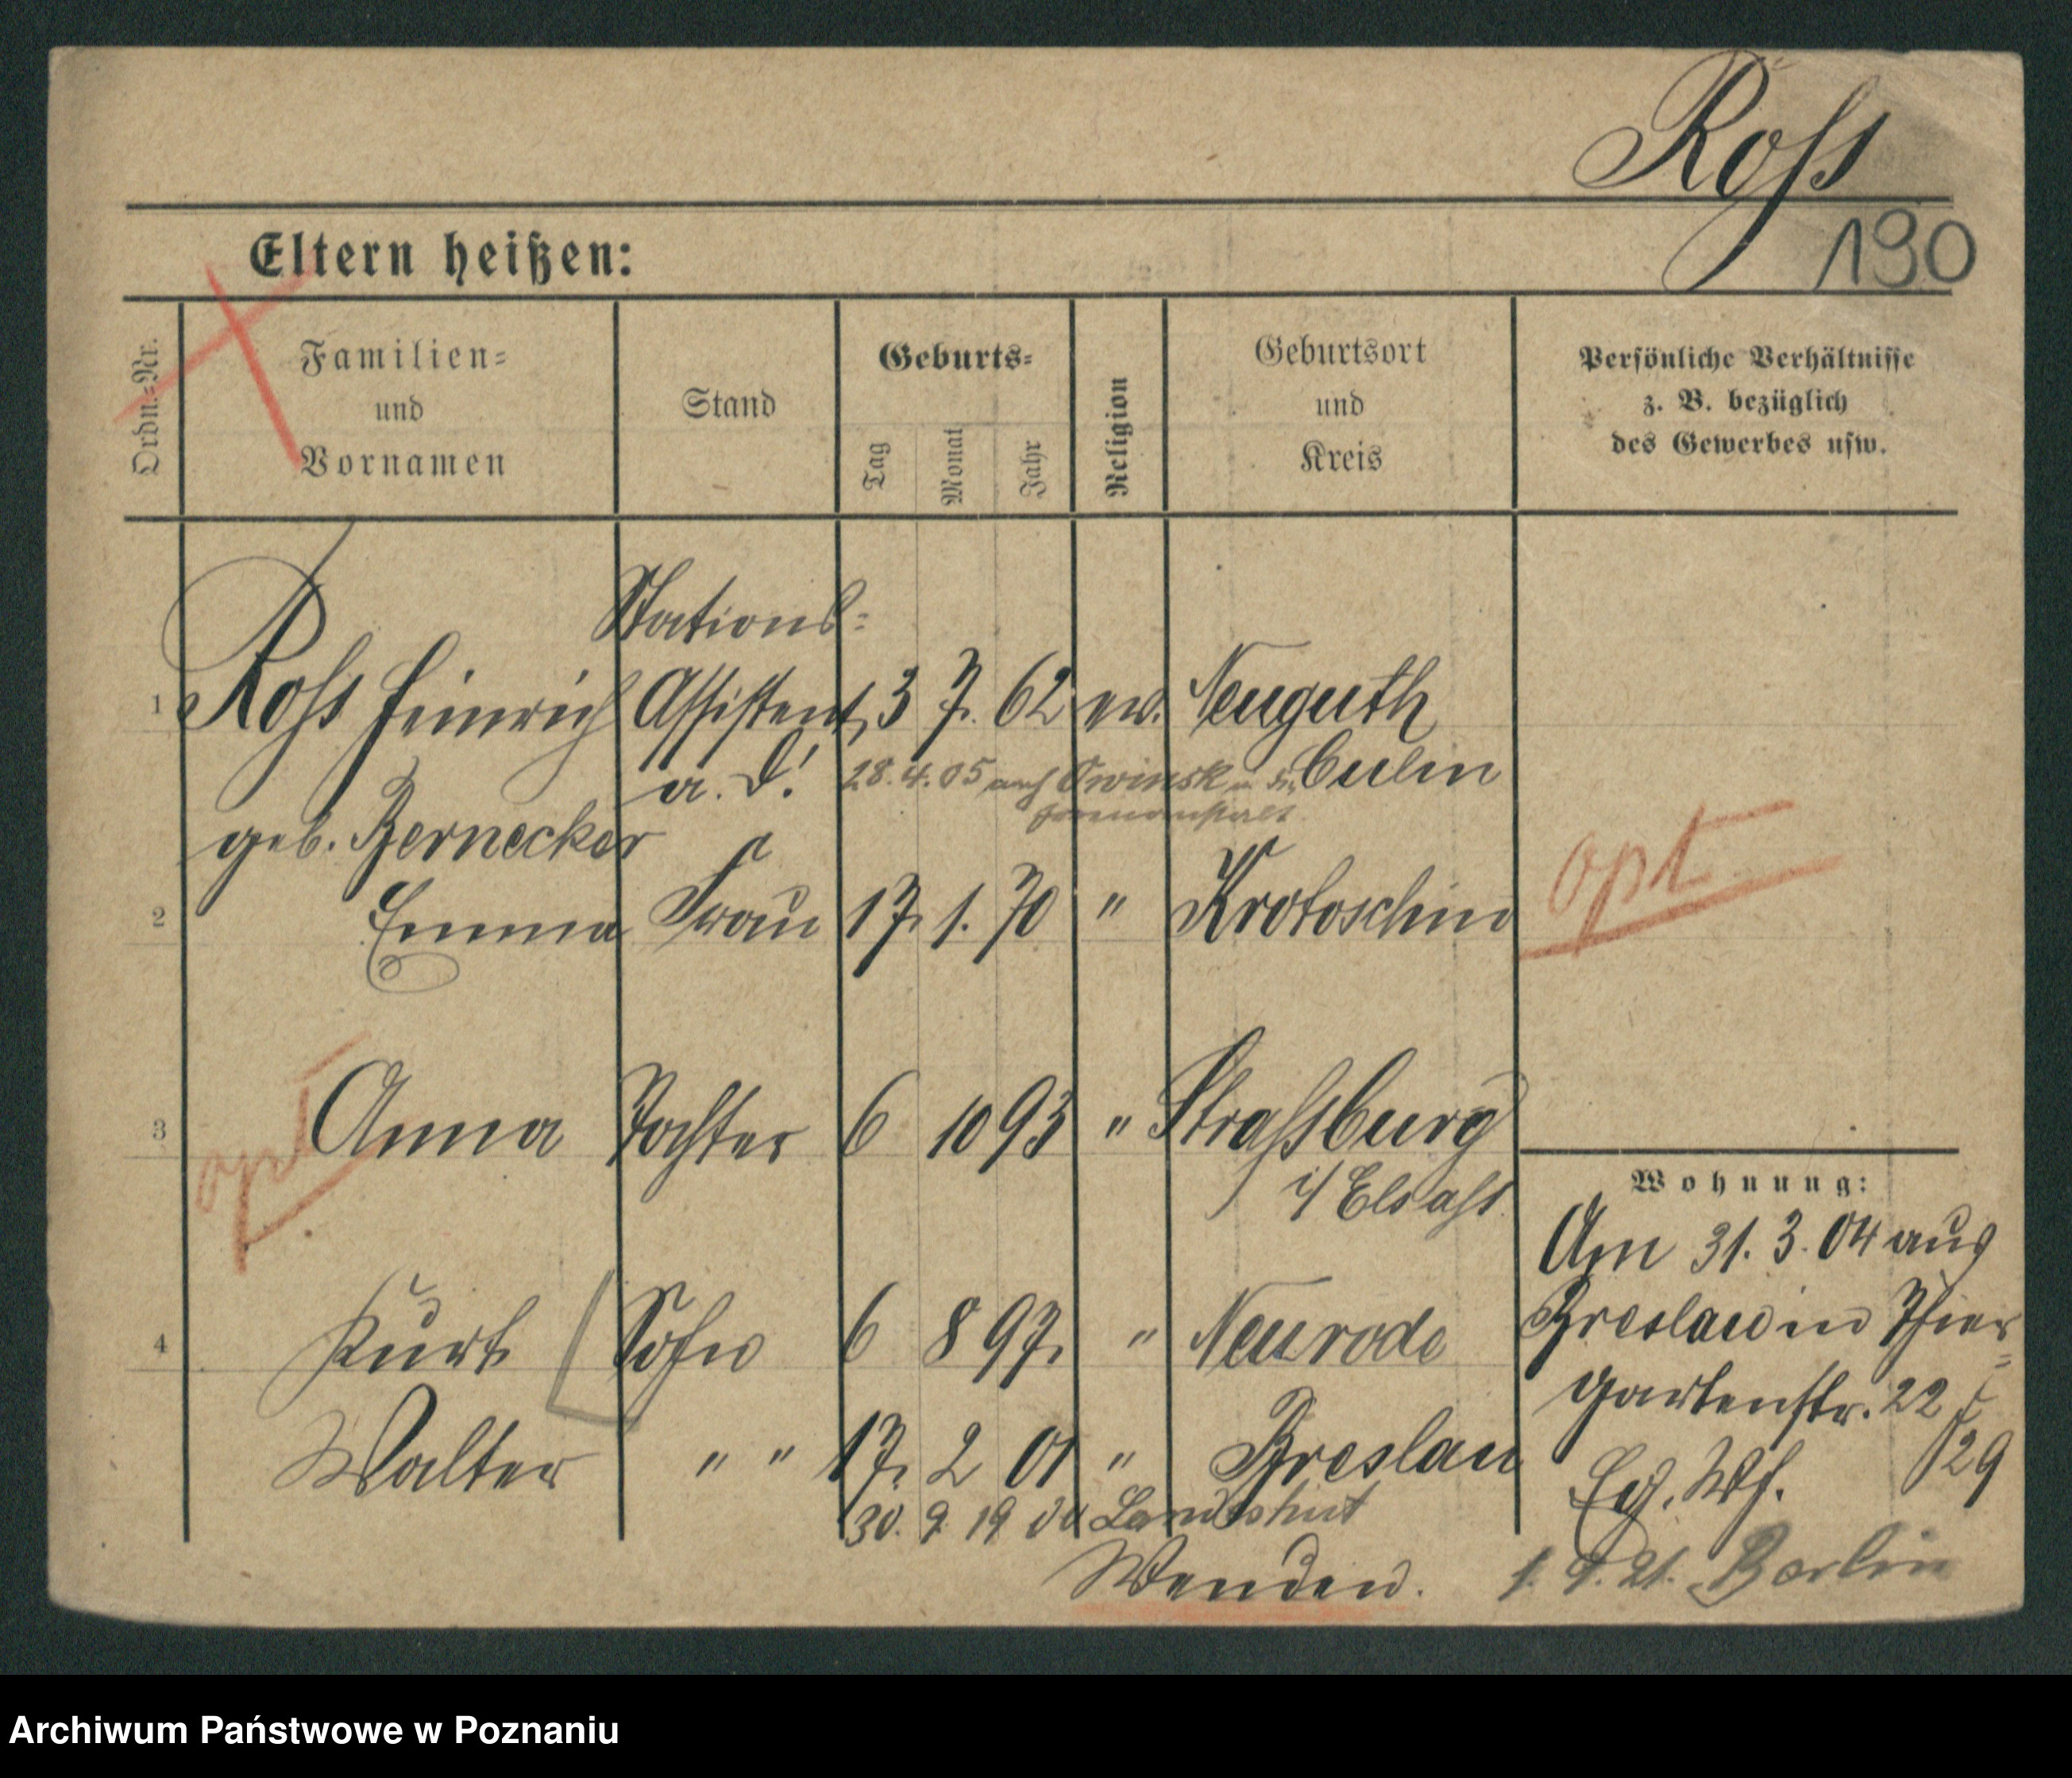 Roß
190
Eltern heißen:
Ordn.-Nr.
Familien-
und
Vornamen
Stand
Geburts-
Tag
Monat
Jahr
Religion
Geburtsort
und
Kreis
Persönliche Verhältnisse
z. B. bezüglich
des Gewerbes usw.
Stations-
1 Roß Heinrich Assistent 3 7. 62 ev. Neuguth
a. D. 28.4.05 nach Owinsk Culm
geb. Bernecker
2 Emma Frau 17. 1. 70 " Krotoschin
opt
3 Anna Tochter 6 10 93 " Straßburg
i/ Elsaß
opt
4 Kurt Sohn 6 8 97. " Neurode
Walter " " 17. 2 01 " Breslau
30. 9. 19 Landshut
Wenden.
Wohnung:
Am 31. 3. 04 aus
Breslau in Thier-
gartenstr. 22
29
1. 9. 21. Berlin
Archiwum Państwowe w Poznaniu